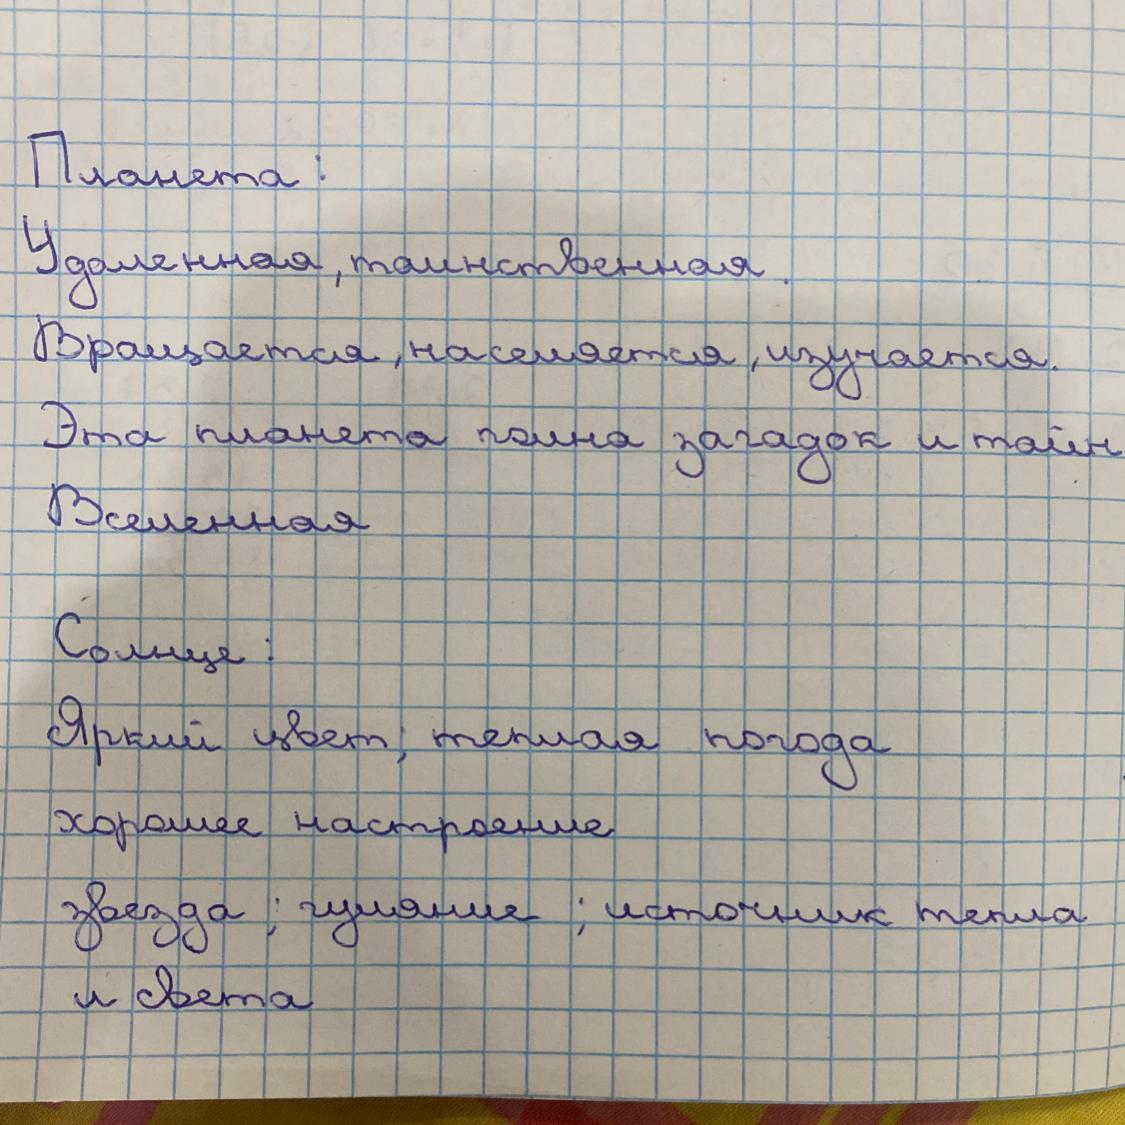 Планета:
Удаленная, таинственная.
Вращается, населяется, изучается.
Эта планета полна загадок и тайн
Вселенная
Солнце:
Яркий цвет; теплая погода
хорошее настроение
звезда; гуляние; источник тепла
и света